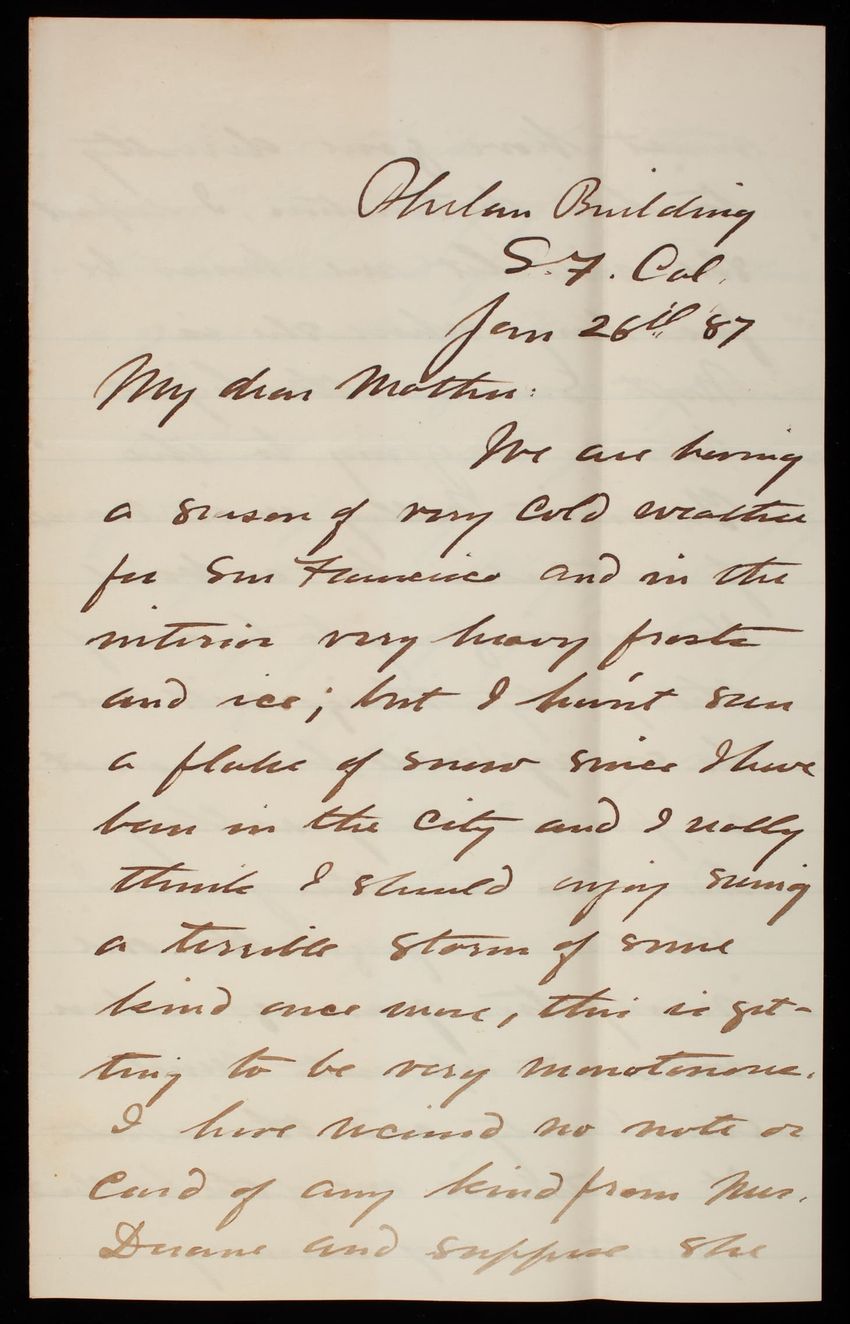 Phelan Building
S.F. Cal.
Jan 26th 87
My dear Mother:
We are having
a season of very cold weather
for San Francisco and in the
interior very heavy frosts
and ice; but I hav'nt seen
a flake of snow since I have
been in the city and I really
think I should enjoy seeing
a terrible storm of some
kind once more, this is get-
ting to be very monotonous.
I have received no note or
card of any kind from Mrs.
Duane and suppose she